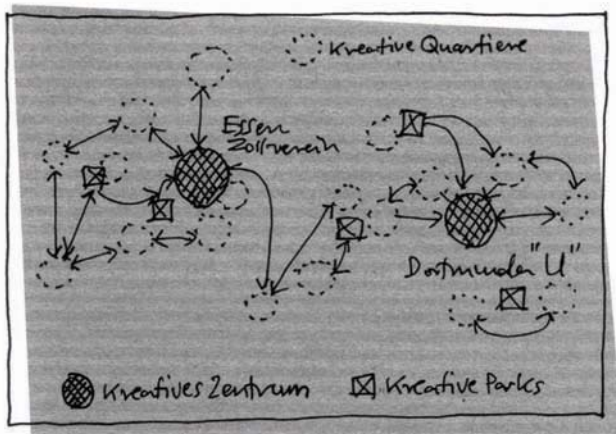 Kreative Quartiere
Essen
Zollverein
Dortmunder "U"
Kreatives Zentrum
Kreative Parks